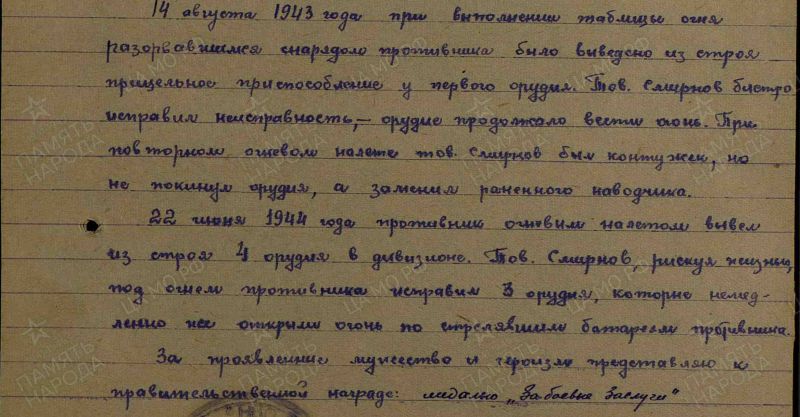 14 августа 1943 года при выполнении таблицы огня
разорвавшимся снарядом противника было выведено из строя
прицельное приспособление у первого орудия. Тов. Смирнов быстро
исправил неисправность, – орудие продолжало вести огонь. При
повторном огневом налете тов. Смирнов был контужен, но
не покинул орудия, а заменил раненного наводчика.
22 июня 1944 года противник огневым налетом вывел
из строя 4 орудия в дивизионе. Тов. Смирнов, рискуя жизнью,
под огнем противника исправил 3 орудия, которые немед-
ленно же открыли огонь по стрелявшим батареям противника.
За проявленные мужество и героизм представляю к
правительственной награде: медалью „За боевые заслуги"
ПАМЯТЬ НАРОДА
ЦАМО РФ